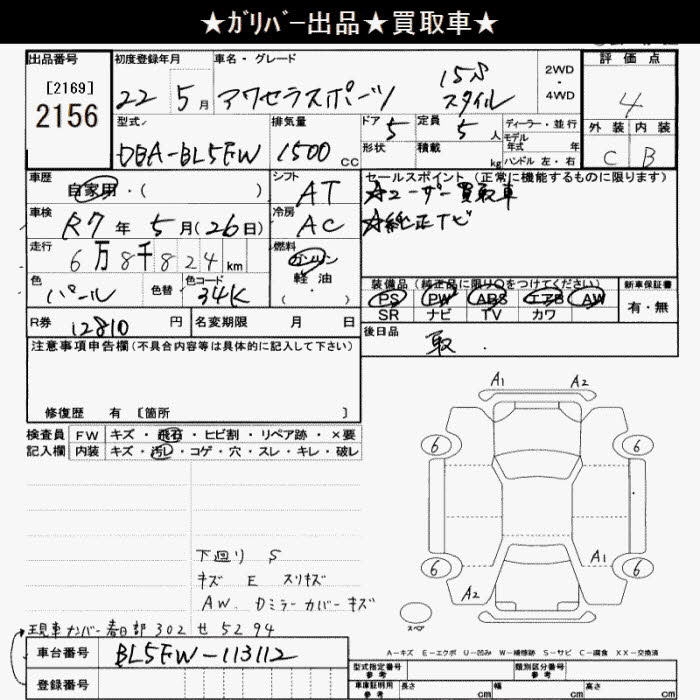 ★ｶﾞﾘﾊﾞｰ出品★買取車★
出品番号 初度登録年月 車名・グレード 評価点
[2169] 2156 22 5月 アクセラスポーツ 15S スタイル 2WD・4WD 4
型式 排気量 ドア 5 定員 5人 ディーラー・並行 外装 内装
DBA-BL5FW 1500cc 形状 積載 kg モデル年式 年 ハンドル 左・右 C B
車歴 自家用・( ) シフト AT セールスポイント (正常に機能するものに限ります)
☆ユーザー買取車
車検 R7年5月(26日) 冷房 AC ☆純正TV
走行 6万8千824km 燃料 ガソリン 軽油 ・( )
色 パール 色替 色コード 34K 装備品 (純正品に限り○をつけてください) 新車保証書
PS PW ABS エアB AW 有・無
SR ナビ TV カワ
R券 12810円 名変期限 月 日 後日品 取.
注意事項申告欄 (不具合内容等は具体的に記入して下さい)
修復歴 有 [箇所 ]
検査員 FW キズ・飛石・ヒビ割・リペア跡・×要
記入欄 内装 キズ・汚レ・コゲ・穴・スレ・キレ・破レ
A1 A2
6 6
6 A1 6
A2
スペア
下廻り S
キズ E スリキズ
AW. Dミラーカバーキズ
現車ナンバー春日部302せ5294
A-キズ E-エクボ U-凹み W-補修跡 S-サビ C-腐食 XX-交換済
車台番号 BL5FW-113112
登録番号
型式指定番号 参考 類別区分番号 参考
車庫証明用 参考 長さ cm 幅 cm 高さ cm